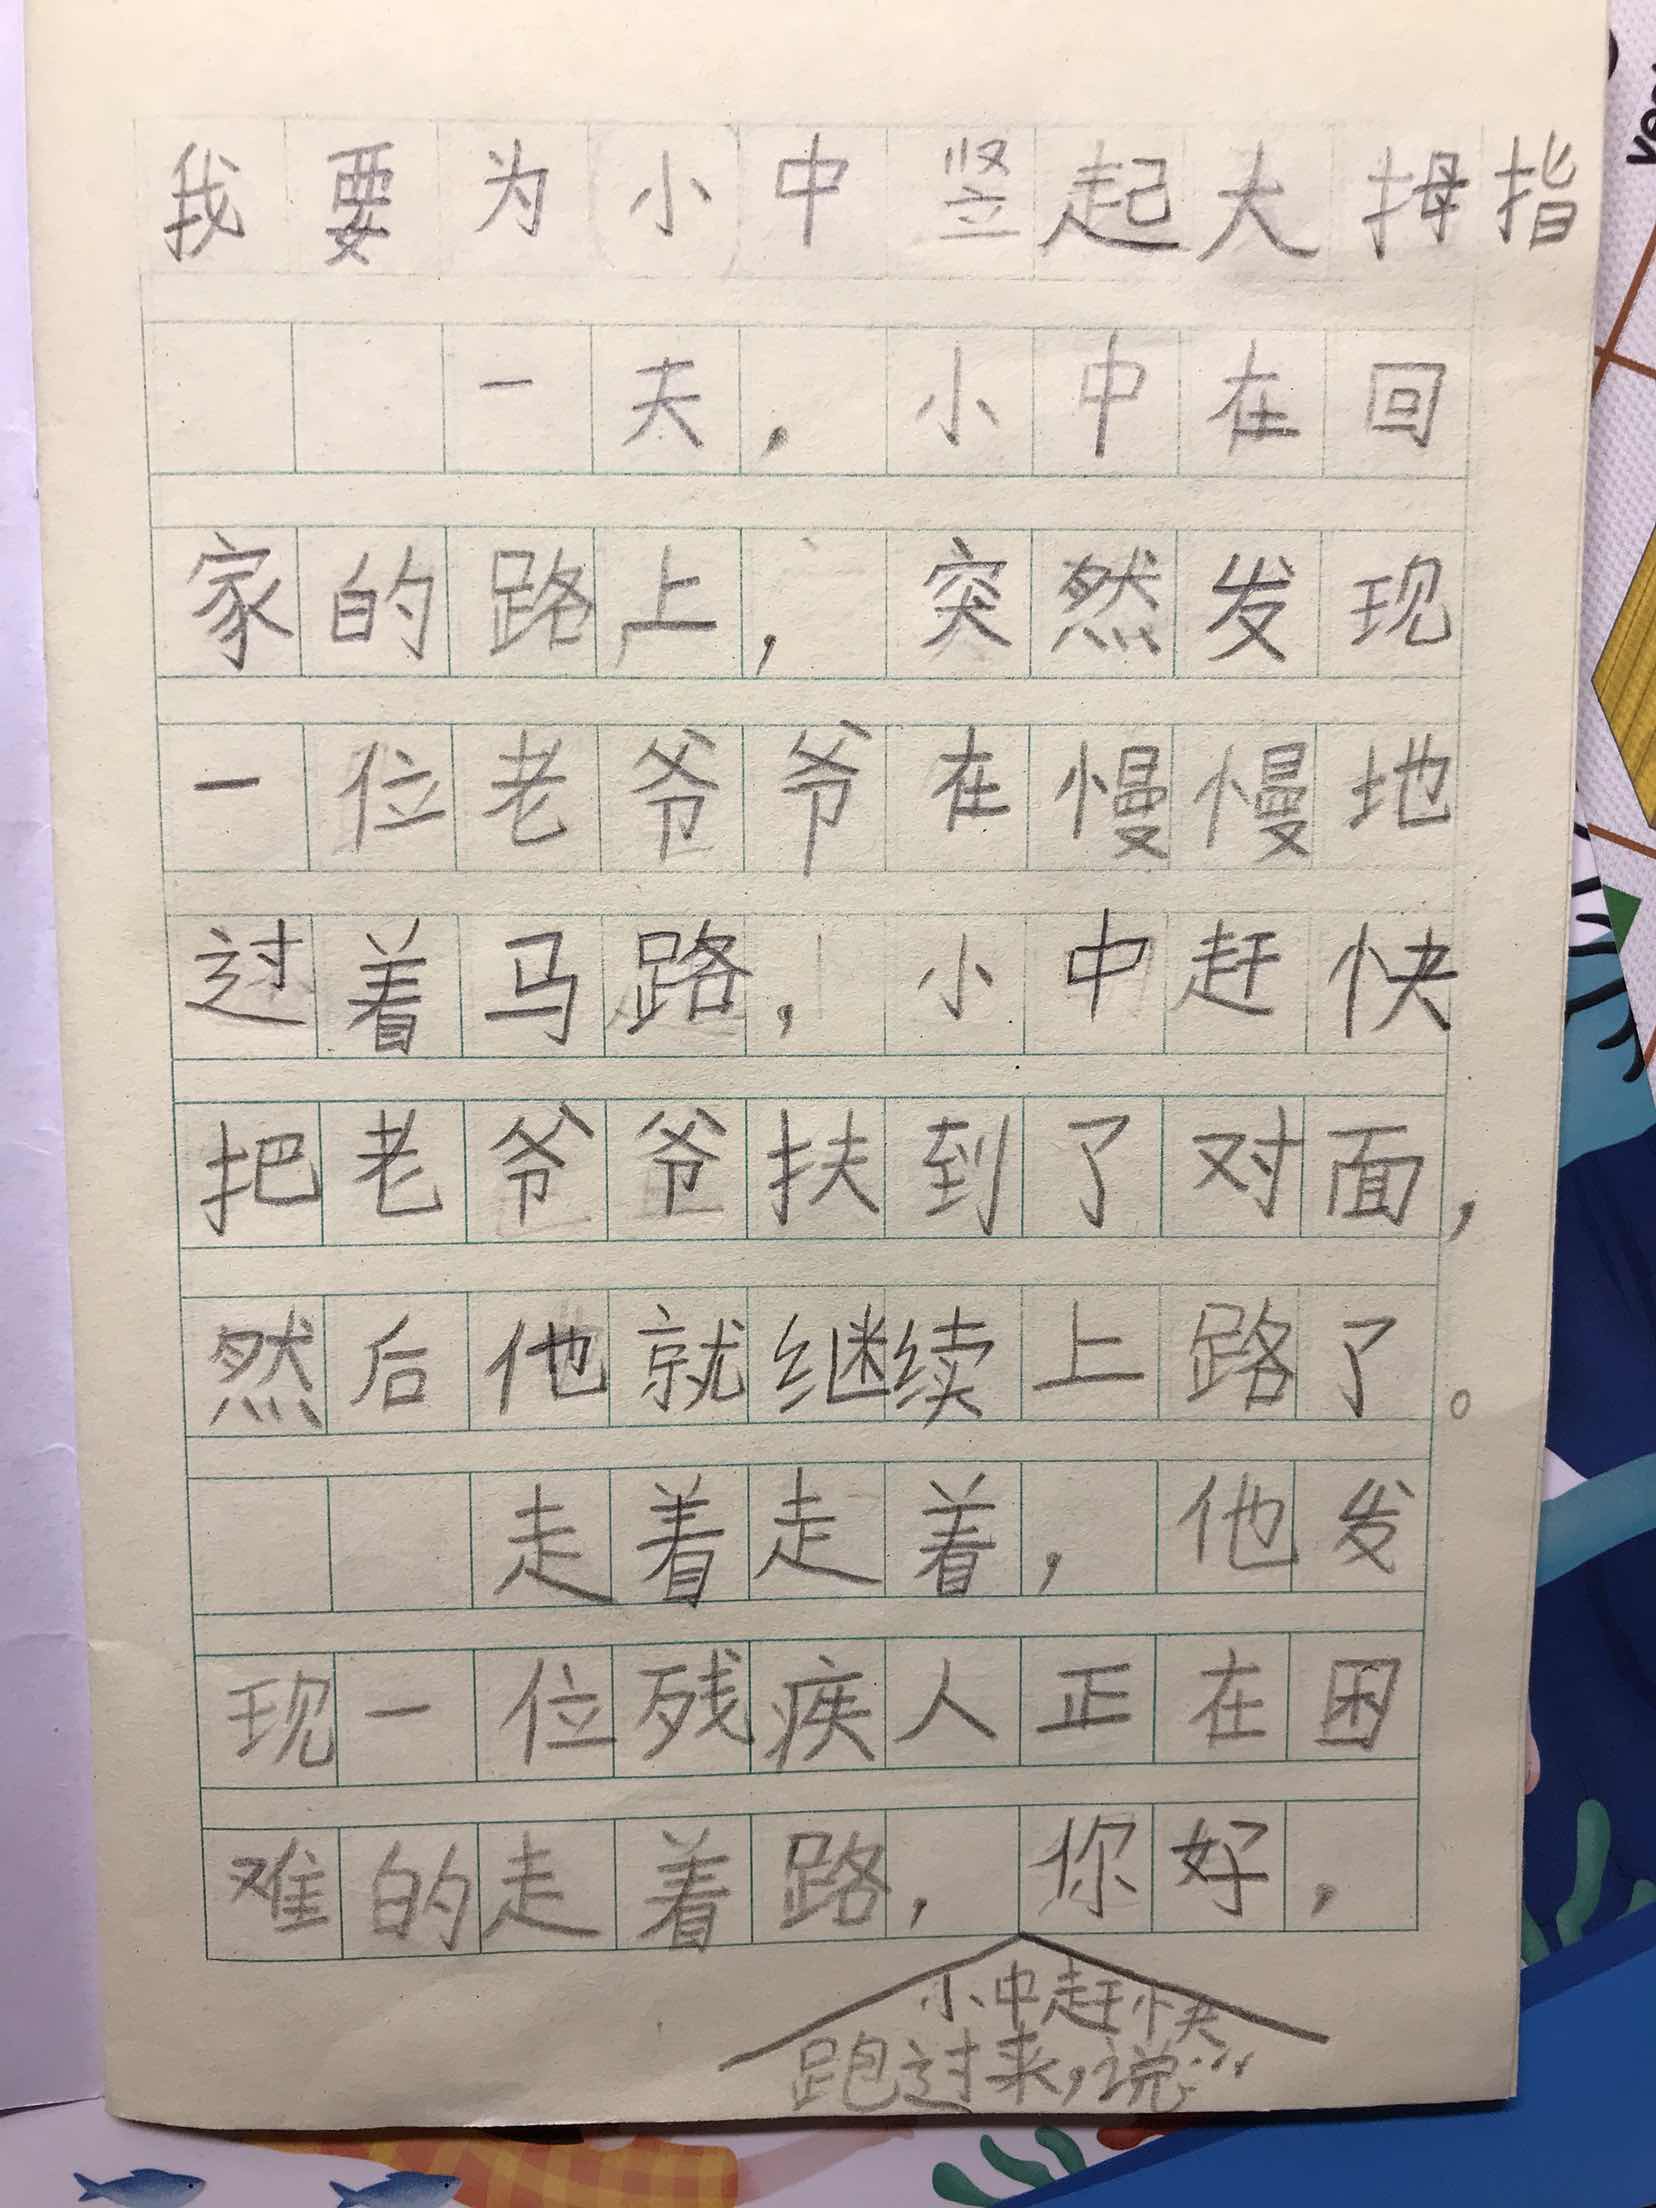 我要为小中竖起大拇指
一天，小中在回
家的路上，突然发现
一位老爷爷在慢慢地
过着马路，小中赶快
把老爷爷扶到了对面，
然后他就继续上路了。
走着走着，他发
现一位残疾人正在困
难的走着路，你好，
小中赶快
跑过来，说：“